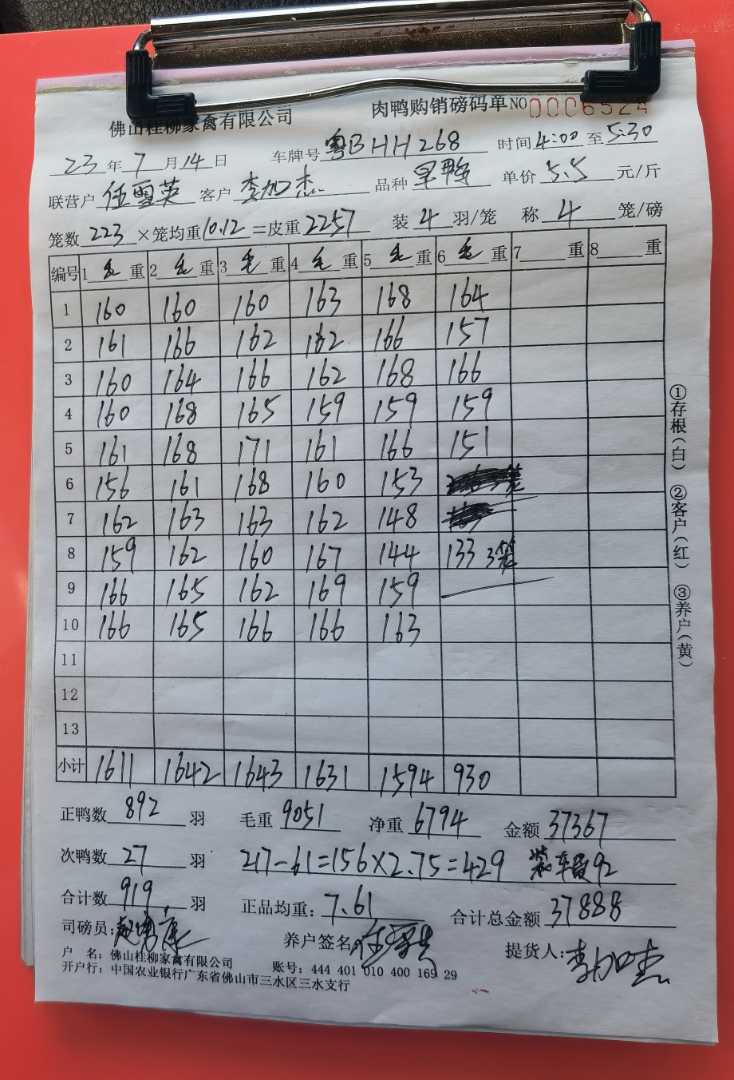 佛山桂柳家禽有限公司 肉鸭购销磅码单 NO 0006524
23 年 7 月 14 日 车牌号 粤BHH268 时间 4:00 至 5:30
联营户 任雪英 客户 李加杰 品种 早鸭 单价 5.5 元/斤
笼数 223 ×笼均重 10.12 =皮重 2257 装 4 羽/笼 称 4 笼/磅
编号 1 毛 重 2 毛 重 3 毛 重 4 毛 重 5 毛 重 6 毛 重 7 重 8 重
1 160 160 160 163 168 164
2 161 166 162 162 166 157
3 160 164 166 162 168 166
4 160 168 165 159 159 159
5 161 168 171 161 166 151
6 156 161 168 160 153
7 162 163 163 162 148
8 159 162 160 167 144 133 3笼
9 166 165 162 169 159
10 166 165 166 166 163
11
12
13
小计 1611 1642 1643 1631 1594 930
正鸭数 892 羽 毛重 9051 净重 6794 金额 37367
次鸭数 27 羽 217-61=156×2.75=429 装车费92
合计数 919 羽 正品均重: 7.61 合计总金额 37888
司磅员: 养户签名 任雪英 提货人: 李加杰
户 名: 佛山桂柳家禽有限公司 账号: 444 401 010 400 169 29
开户行: 中国农业银行广东省佛山市三水区三水支行
①存根(白) ②客户(红) ③养户(黄)